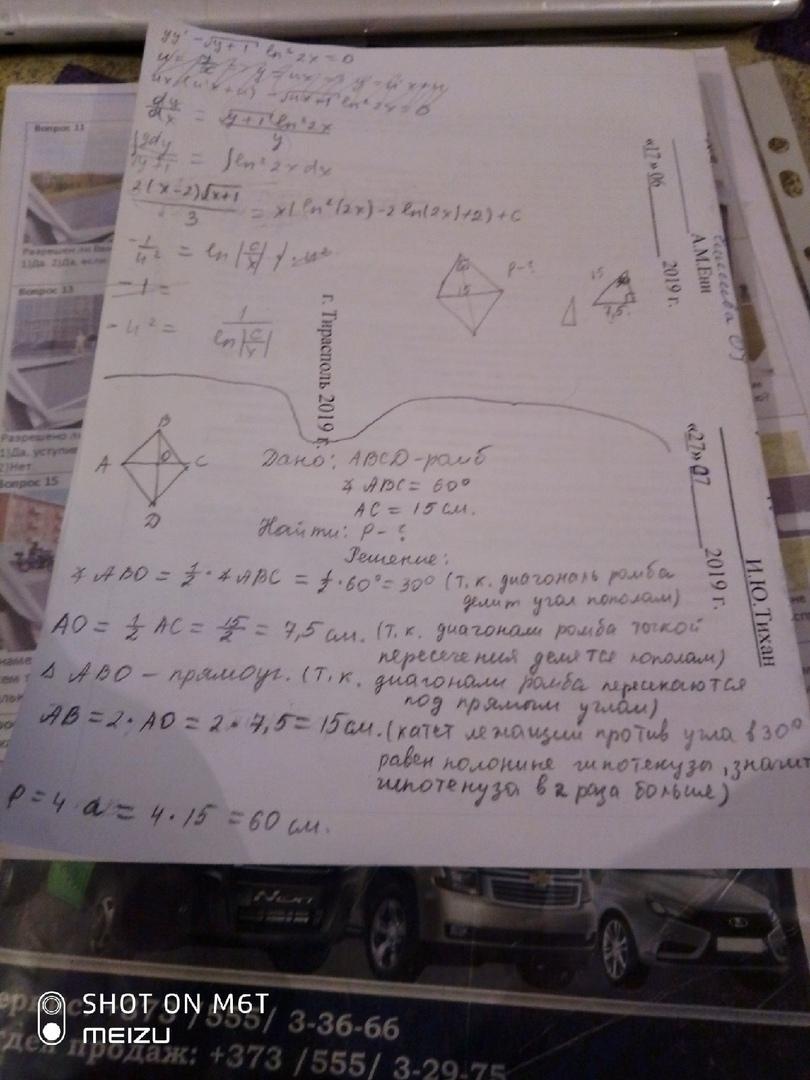 yy' - √y+1 ln² 2x = 0
dy/dx = √y+1 ln² 2x / y
∫ ydy/√y+1 = ∫ ln² 2x dx
2(x-2)√x+1 / 3 = x(ln²(2x) - 2 ln(2x) + 2) + C
-1/u² = ln|C/x|
-1 =
-u² = 1 / ln|C/x|
60
15
P-?
15
7,5
«17» 06
2019 г.
А.М.Ени
г. Тирасполь 2019 г.
«27» 07
2019 г.
И.Ю.Тихан
A B C D O
Дано: ABCD-ромб
∡ ABC = 60°
AC = 15 см.
Найти: P-?
Решение:
∡ ABO = 1/2 · ∡ ABC = 1/2 · 60° = 30° (т.к. диагональ ромба
делит угол пополам)
AO = 1/2 AC = 15/2 = 7,5 см. (т.к. диагонали ромба точкой
пересечения делятся пополам)
Δ ABO - прямоуг. (т.к. диагонали ромба пересекаются
под прямым углом)
AB = 2 · AO = 2 · 7,5 = 15 см. (катет лежащий против угла в 30°
равен полонине гипотенузы, значит
гипотенуза в 2 раза больше)
P = 4 a = 4 · 15 = 60 см.
Вопрос 11
1)Да. 2)Да, если
Вопрос 13
1)Да, уступив
2)Нет
Вопрос 15
NEXT
/555/ 3-36-66
продаж: +373 /555/ 3-29-75
SHOT ON M6T
MEIZU